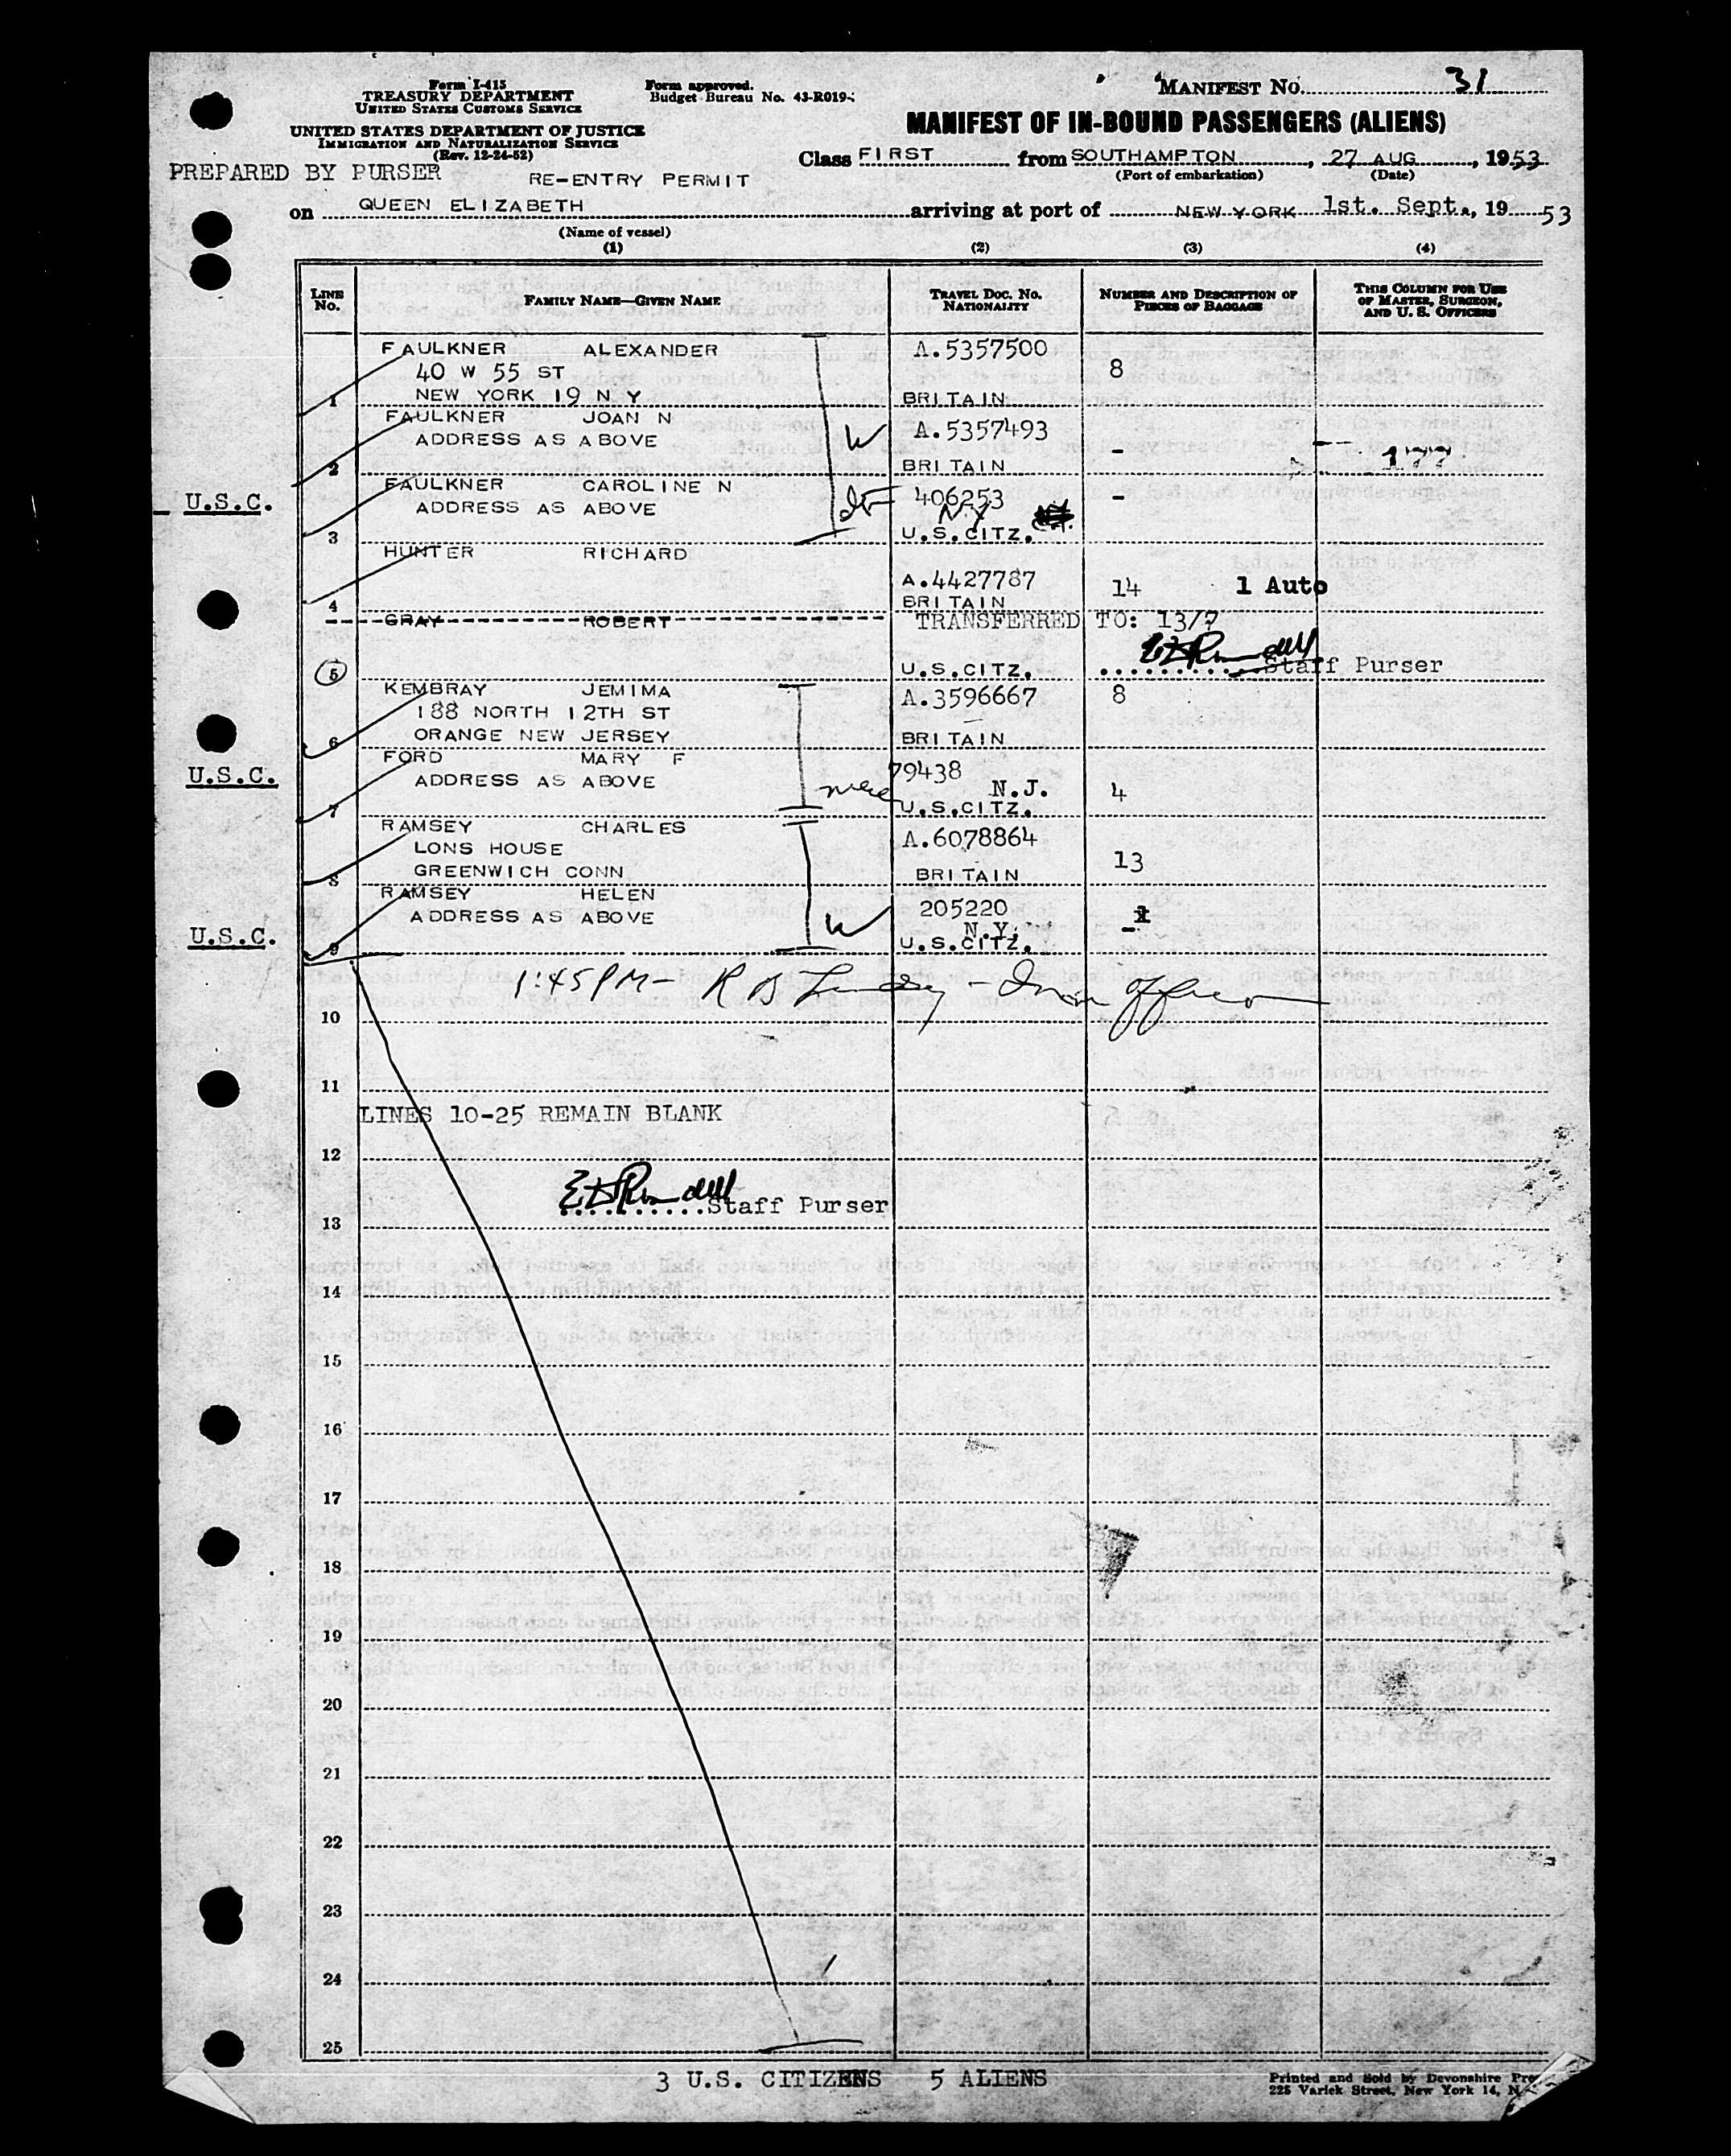 Form I-415
TREASURY DEPARTMENT
UNITED STATES CUSTOMS SERVICE
UNITED STATES DEPARTMENT OF JUSTICE
IMMIGRATION AND NATURALIZATION SERVICE
(Rev. 12-24-52)
PREPARED BY PURSER
RE-ENTRY PERMIT
Form approved.
Budget Bureau No. 43-R019-
MANIFEST No. 31
MANIFEST OF IN-BOUND PASSENGERS (ALIENS)
Class FIRST from SOUTHAMPTON, 27 AUG, 1953
(Port of embarkation) (Date)
on QUEEN ELIZABETH arriving at port of NEW YORK 1st. Sept., 19 53
(Name of vessel)
(1) (2) (3) (4)
LINE No. FAMILY NAME—GIVEN NAME TRAVEL DOC. No. NATIONALITY NUMBER AND DESCRIPTION OF PIECES OF BAGGAGE THIS COLUMN FOR USE OF MASTER, SURGEON, AND U. S. OFFICERS
FAULKNER ALEXANDER A.5357500
40 W 55 ST 8
1 NEW YORK 19 N Y BRITAIN
FAULKNER JOAN N A.5357493
ADDRESS AS ABOVE W -
2 BRITAIN 177
U.S.C. FAULKNER CAROLINE N 406253 -
ADDRESS AS ABOVE NY
3 U.S.CITZ.
HUNTER RICHARD
A.4427787 14 1 Auto
4 BRITAIN
GRAY ROBERT TRANSFERRED TO: 13/7
5 U.S.CITZ. Staff Purser
KEMBRAY JEMIMA A.3596667 8
188 NORTH 12TH ST
6 ORANGE NEW JERSEY BRITAIN
U.S.C. FORD MARY F 79438
ADDRESS AS ABOVE N.J. 4
7 U.S.CITZ.
RAMSEY CHARLES A.6078864
LONS HOUSE 13
8 GREENWICH CONN BRITAIN
RAMSEY HELEN 205220
U.S.C. ADDRESS AS ABOVE W N.Y. -
9 U.S.CITZ.
1:45 PM-
10
11
LINES 10-25 REMAIN BLANK
12
Staff Purser
13
14
15
16
17
18
19
20
21
22
23
24
25
3 U.S. CITIZENS 5 ALIENS
Printed and Sold by Devonshire
225 Varick Street, New York 14, N.